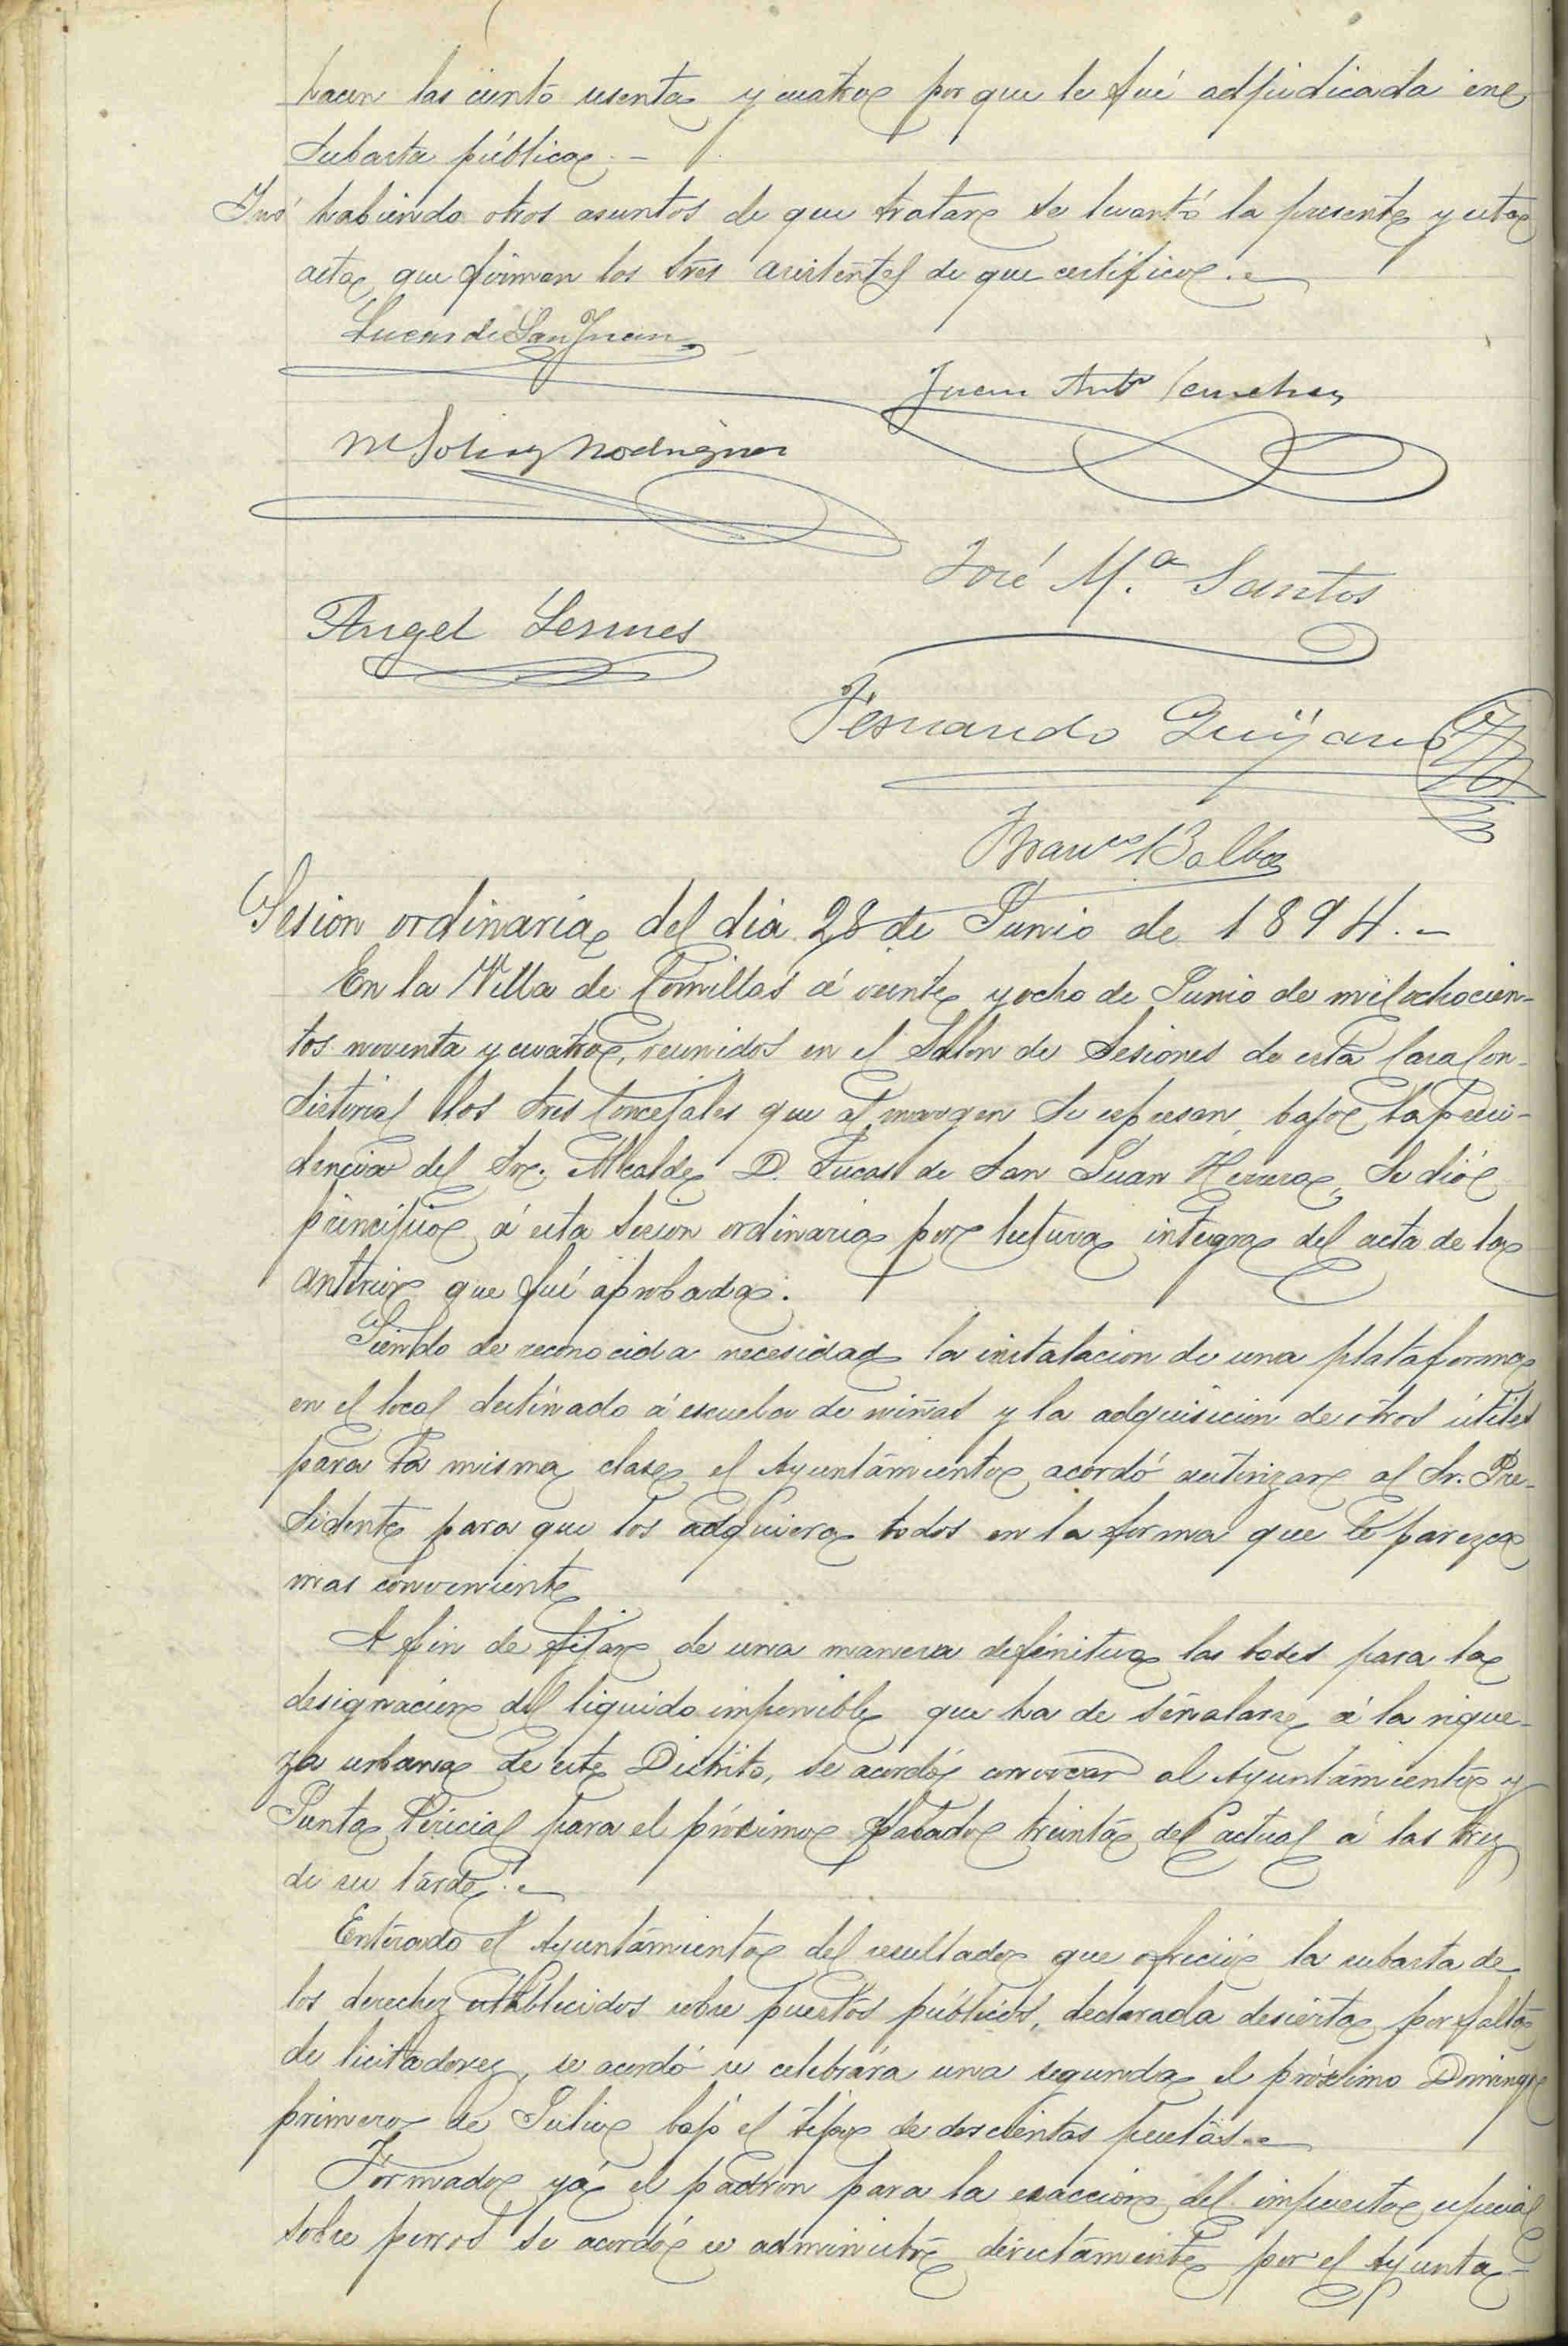 hacen las ciento sesenta y cuatro por que le fué adjudicada en
subasta pública.-
Y no habiendo otros asuntos de que tratar se levantó la presente y esta
acta que firman los Sres asistentes de que certifico.-
Lucas de San Juan
Juan Antº Sanchez
M Solis y Rodriguez
José M.ª Santos
Angel Lesmes
Fernando Quijano
Franco Balbas
Sesion ordinaria del dia 28 de Junio de 1894.-
En la Villa de Comillas á veinte y ocho de Junio de mil ochocien-
tos noventa y cuatro, reunidos en el Salon de Sesiones de esta Casa Con-
sistorial los Sres Concejales que al margen se espresan, bajo la presi-
dencia del Sr. Alcalde D. Lucas de San Juan Herrera, se dió
principio á esta sesion ordinaria por lectura integra del acta de la
anterior que fué aprobada.
Siendo de reconocida necesidad la instalacion de una plataforma
en el local destinado á escuela de niñas y la adquisicion de otros útiles
para la misma clase, el Ayuntamiento acordó autorizar al Sr. Pre-
sidente para que los adquiera todos en la forma que le parezca
mas conveniente
A fin de fijar de una manera definitiva las bases para la
designacion del liquido imponible que ha de señalarse á la rique-
za urbana de este Distrito, se acordó convocar al Ayuntamiento y
Junta Pericial para el próximo Sabado treinta del actual á las tres
de su tarde.-
Enterado el Ayuntamiento del resultado que ofreció la subasta de
los derechos establecidos sobre puestos públicos, declarada desierta por falta
de licitadores, se acordó se celebrára una segunda el próximo Domingo
primero de Julio bajo el tipo de doscientas pesetas.-
Formado yá el padron para la exaccion del impuesto especial
sobre perros se acordó se administre directamente por el Ayunta-